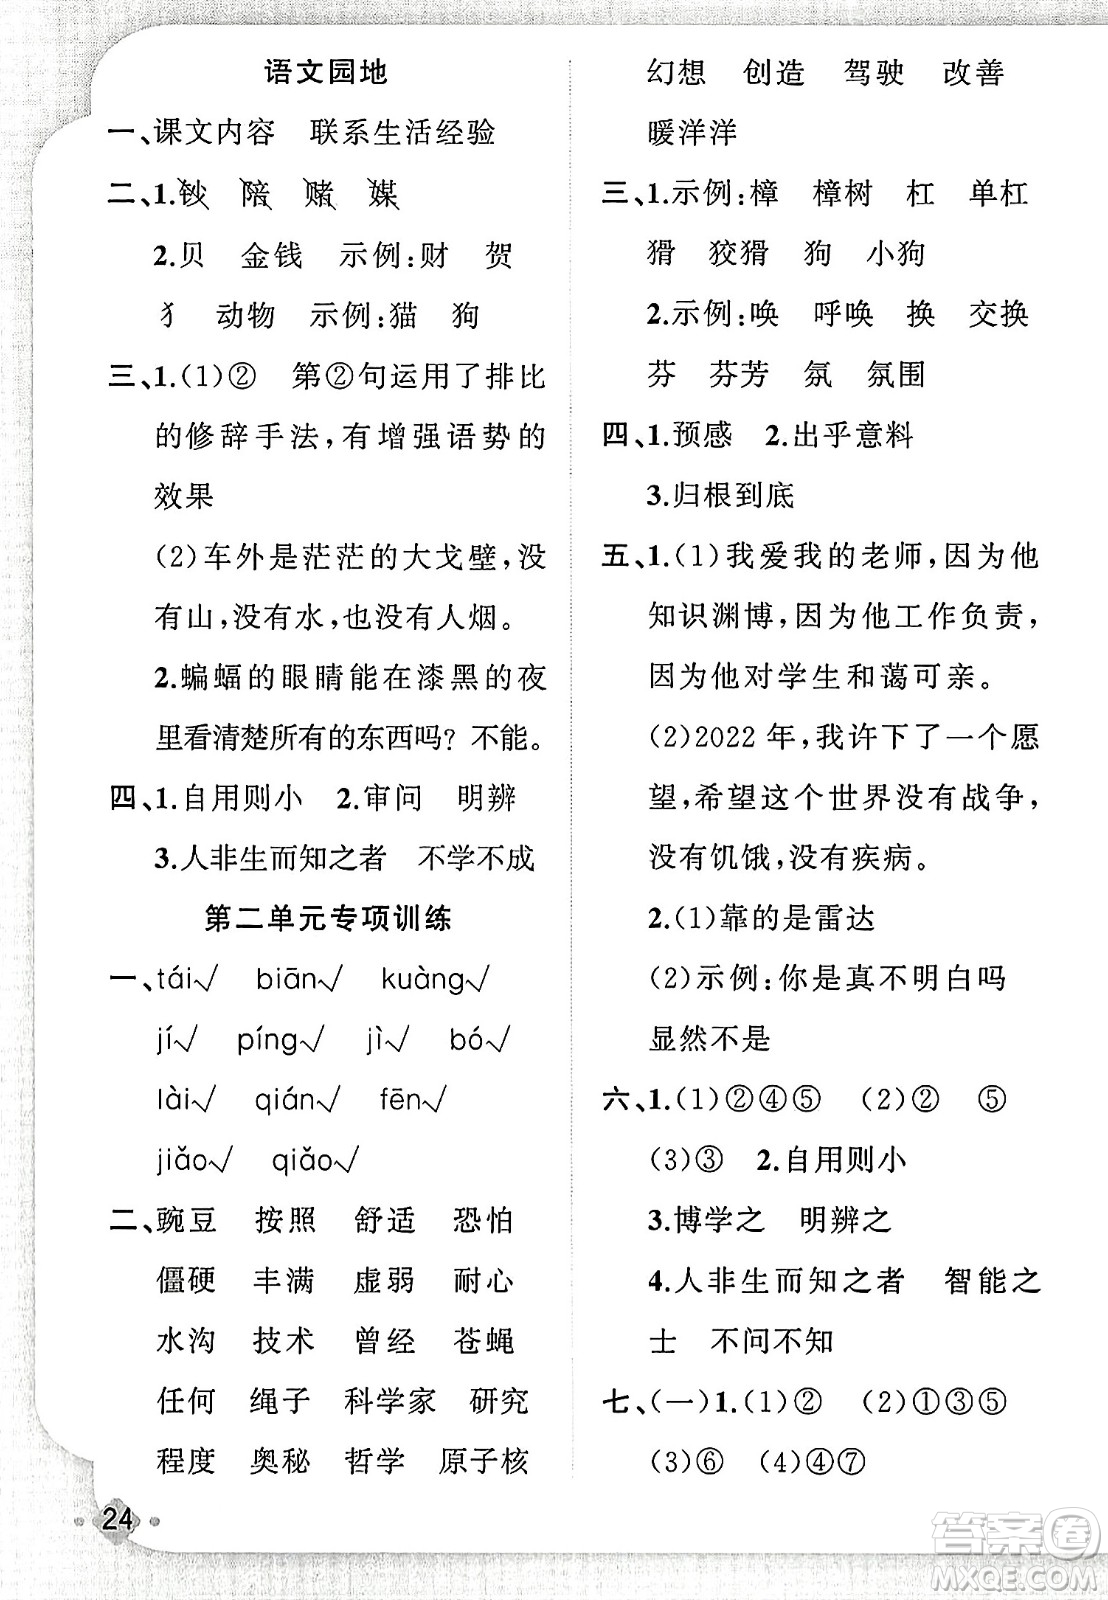 语文园地
一、课文内容 联系生活经验
二、1.钞 陪 赌 媒
2.贝 金钱 示例:财 贺
犭 动物 示例:猫 狗
三、1.(1)② 第②句运用了排比
的修辞手法,有增强语势的
效果
(2)车外是茫茫的大戈壁,没
有山,没有水,也没有人烟。
2.蝙蝠的眼睛能在漆黑的夜
里看清楚所有的东西吗? 不能。
四、1.自用则小 2.审问 明辨
3.人非生而知之者 不学不成
第二单元专项训练
一、tái√ biān√ kuàng√
jí√ píng√ jì√ bó√
lài√ qián√ fēn√
jiǎo√ qiǎo√
二、豌豆 按照 舒适 恐怕
僵硬 丰满 虚弱 耐心
水沟 技术 曾经 苍蝇
任何 绳子 科学家 研究
程度 奥秘 哲学 原子核
24
幻想 创造 驾驶 改善
暖洋洋
三、1.示例:樟 樟树 杠 单杠
猾 狡猾 狗 小狗
2.示例:唤 呼唤 换 交换
芬 芬芳 氛 氛围
四、1.预感 2.出乎意料
3.归根到底
五、1.(1)我爱我的老师,因为他
知识渊博,因为他工作负责,
因为他对学生和蔼可亲。
(2)2022 年,我许下了一个愿
望,希望这个世界没有战争,
没有饥饿,没有疾病。
2.(1)靠的是雷达
(2)示例:你是真不明白吗
显然不是
六、1.(1)②④⑤ (2)② ⑤
(3)③ 2.自用则小
3.博学之 明辨之
4.人非生而知之者 智能之
士 不问不知
七、(一)1.(1)② (2)①③⑤
(3)⑥ (4)④⑦
答案圈
MXQE.COM